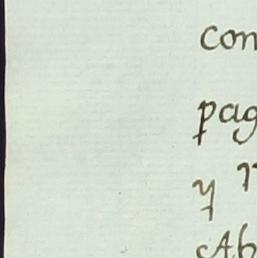 con
pag
y
Ab